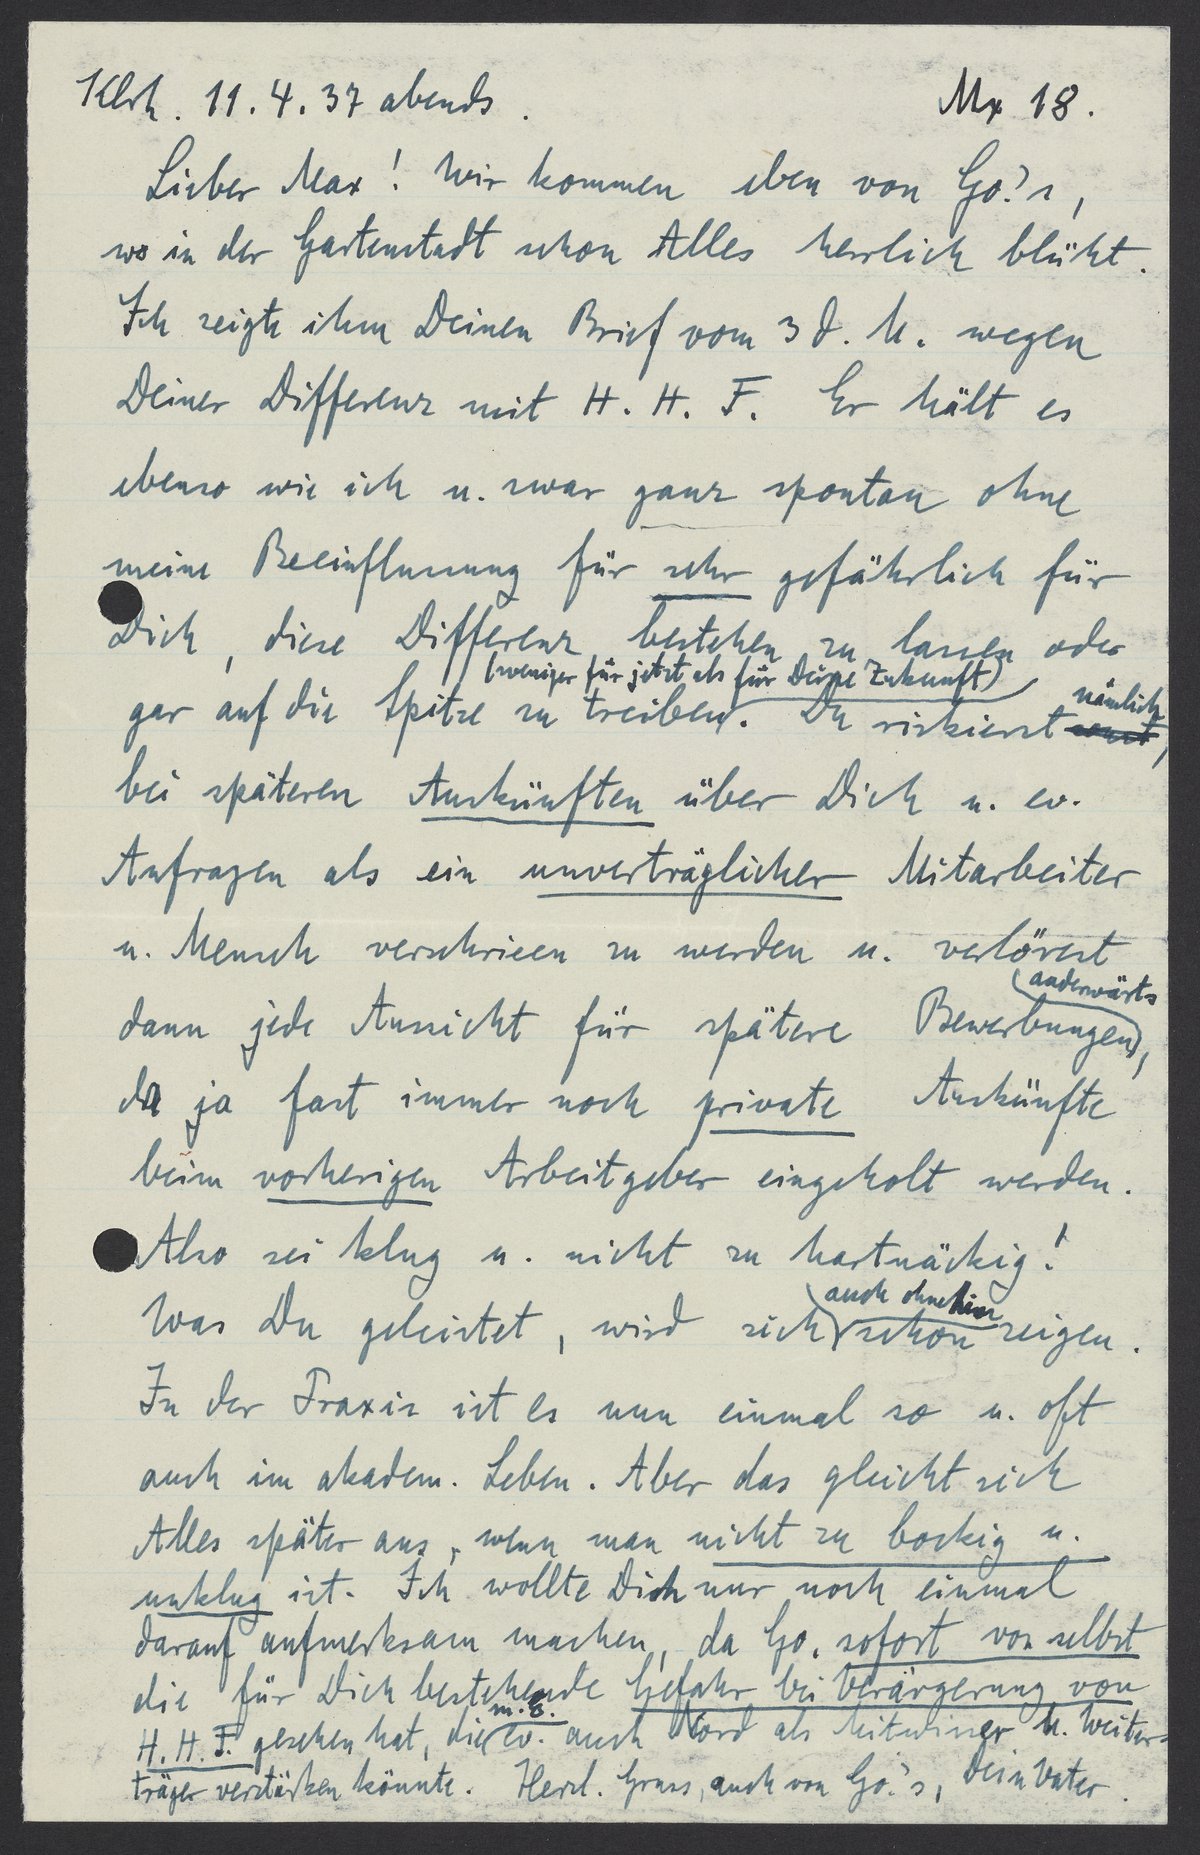 Klrh. 11.4.37 abends.
Mx 18.
Lieber Max! Wir kommen eben von Go.'s,
wo in der Gartenstadt schon Alles herrlich blüht.
Ich zeigte ihm Deinen Brief vom 3 d. M. wegen
Deiner Differenz mit H. H. F. Er hält es
ebenso wie ich u. zwar ganz spontan ohne
meine Beeinflussung für sehr gefährlich für
Dich, diese Differenz bestehen zu lassen oder
(weniger für jetzt als für Deine Zukunft)
gar auf die Spitze zu treiben. Du riskierst nämlich,
bei späteren Auskünften über Dich u. ev.
Anfragen als ein unverträglicher Mitarbeiter
u. Mensch verschrieen zu werden u. verlörest
anderwärts
dann jede Aussicht für spätere Bewerbungen,
da ja fast immer noch private Auskünfte
beim vorherigen Arbeitgeber eingeholt werden.
Also sei klug u. nicht zu hartnäckig!
auch ohnehin
Was Du geleistet, wird sich schon zeigen.
In der Praxis ist es nun einmal so u. oft
auch im akadem. Leben. Aber das gleicht sich
Alles später aus, wenn man nicht zu bockig u.
unklug ist. Ich wollte Dich nur noch einmal
darauf aufmerksam machen, da Go. sofort von selbst
die für Dich bestehende Gefahr bei Verärgerung von
m. E.
H. H. F. gesehen hat, die ev. auch Nord als Mitwisser u. Weiter-
träger verstärken könnte. Herzl. Gruss, auch von Go.'s, Dein Vater.